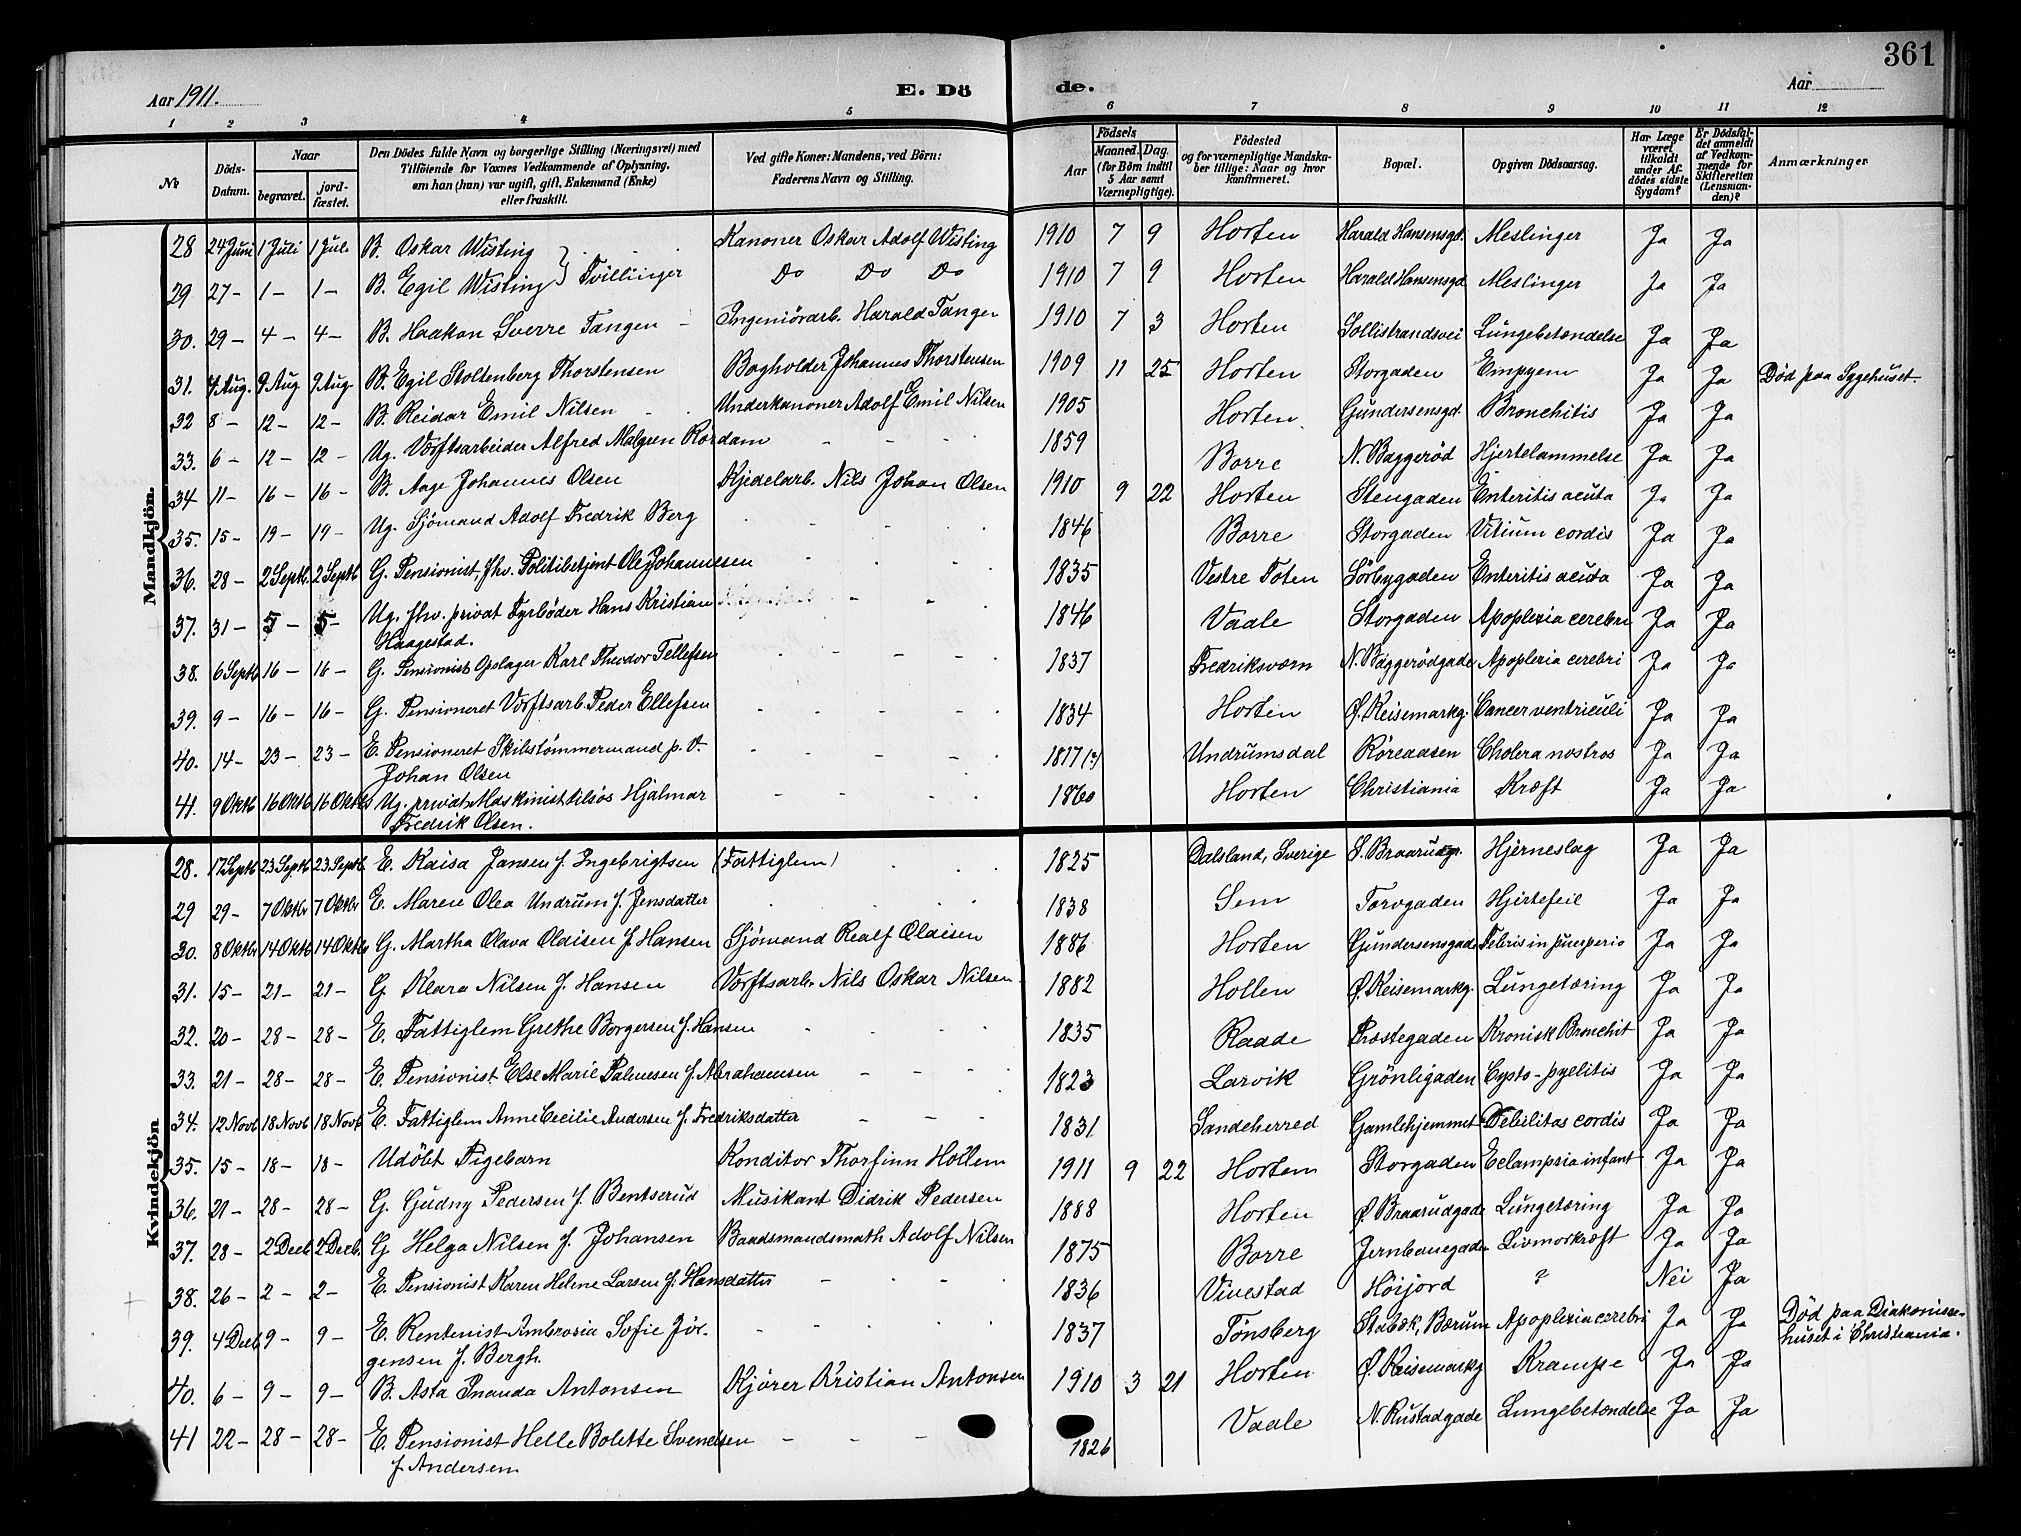 361
Aar 1911. E. Dö de. Aar
1 2 3 4 5 6 7 8 9 10 11 12
№ Döds-Datum. Naar begravet. jord-fæstet. Den Dödes fulde Navn og borgerlige Stilling (Næringsvei) med Tilföiende for Voxnes Vedkommende af Oplysning, om han (hun) var ugift, gift, Enkemand (Enke) eller fraskilt. Ved gifte Koner: Mandens, ved Börn: Faderens Navn og Stilling. Födsels Aar Maaned. Dag. (for Börn indtil 5 Aar samt Værnepligtige). Födested og for værnepligtige Mandskaber tillige: Naar og hvor konfirmeret. Bopæl. Opgiven Dödsaarsag. Har Læge været tilkaldt under Afdödes sidste Sygdom? Er Dödsfaldet anmeldt af Vedkommende for Skifteretten (Lensmanden)? Anmærkninger
Mandkjön.
28 24 Juni 1 Juli 1 Juli B. Oskar Wisting } Kanoner Oskar Adolf Wisting 1910 7 9 Horten Harald Hansensgd. Meslinger Ja Ja
29 27 – 1 – 1 – B. Egil Wisting } Tvillinger Do Do Do 1910 7 9 Horten Harald Hansensgd Meslinger Ja Ja
30. 29 – 4 – 4 – B. Haakon Sverre Tangen – Ingeniörarb. Harald Tangen 1910 7 3 Horten Sollistrandsvei Lungebetændelse Ja Ja
31. 4 Aug. 9 Aug 9 Aug B. Egil Stoltenberg Thorstensen Bogholder Johannes Thorstensen 1909 11 25 Horten Storgaden Empyem Ja Ja Död paa Sygehuset.
32 8 – 12 – 12 – B. Reidar Emil Nilsen Underkanoner Adolf Emil Nilsen 1905 Horten Gundersensgd. Bronchitis Ja Ja
33. 6 – 12 – 12 – Ug. Værftsarbeider Alfred Malgeen Rordam 1859 Borre N. Baggerød Hjertelammelse Ja Ja
34 11 – 16 – 16 – B. Aage Johannes Olsen Kjedelarb. Nils Johan Olsen 1910 9 22 Horten Stengaden Enteritis acuta Ja Ja
35. 15 – 19 – 19 – Ug. Sjömand Adolf Fredrik Berg 1846 Borre Storgaden Vitium cordis Ja Ja
36. 28 – 2 Septb. 2 Septb G. Pensionist fhv. Politibetjent Ole Johannesen 1835 Vestre Toten Sörbygaden Enteritis acuta Ja Ja
37. 31 – 5 – 5 – Ug. fhv. privat Fyrböder Hans Kristian 1846 Vaale Storgaden Apoplexia cerebri Ja Ja
Haagestad.
38. 6 Septb 16 – 16 – G. Pensionist Opslager Karl Theodor Tellefsen 1837 Fredriksværn N. Baggerödgade Apoplexia cerebri Ja Ja
39. 9 – 16 – 16 – G. Pensioneret Værftsarb. Peder Ellefsen 1834 Horten Ø. Keisemarkg. Cancer ventriculi Ja Ja
40. 14 – 23 – 23 – E. Pensioneret Skibstömmermand p. V. 1817 (?) Undrumsdal Röreaasen Cholera nostras Ja Ja
Johan Olsen
41. 9 Oktb 16 Oktb 16 Oktb Ug. privat Maskinist tilsös Hjalmar 1860 Horten Christiania Kræft Ja Ja
Fredrik Olsen.
Kvindekjön
28. 17 Septb 23 Septb 23 Septb. E. Kaisa Jansen f. Ingebrigtsen (Fattiglem) 1825 Dalsland, Sverige S. Braarudg. Hjerneslag Ja Ja
29 29 – 7 Oktbr 7 Oktbr E. Maren Olea Undrum f. Jensdatter 1838 Sem Torvgaden Hjertefeil Ja Ja
30. 8 Oktbr 14 Oktb 14 Oktb G. Martha Olava Oldisen f Hansen Sjömand Realf Oldisen 1886 Horten Gundersensgade Febris in puerperio Ja Ja
31. 15 – 21 – 21 – G. Klara Nilsen f. Hansen Værftsarb. Nils Oskar Nilsen 1882 Hollen Ø. Keisemarkg. Lungetæring Ja Ja
32. 20 – 28 – 28 – E. Fattiglem Grethe Borgersen f. Hansen 1835 Raade Præstegaden Kronisk Bronchit Ja Ja
33. 21 – 28 – 28 – E. Pensionist Else Marie Palmesen f. Abrahamsen 1823 Larvik Grönligaden Cysto-pyelitis Ja Ja
34. 12 Novb 18 Novb 18 Novb E. Fattiglem Anne Cecilie Andersen f. Fredriksdatter 1831 Sandeherred Gamlehjemmet Debilitas cordis Ja Ja
35. 15 – 18 – 18 – Udöbt Pigebarn Konditor Thorfinn Hollem 1911 9 22 Horten Storgaden Eclampsia infant Ja Ja
36. 21 – 28 – 28 – G. Gudny Pedersen f. Bentserud Musikant Didrik Pedersen 1888 Horten Ø. Braarudgade Lungetæring Ja Ja
37. 28 – 2 Decb 2 Decb. G Helga Nilsen f. Johansen Baadsmandsmath Adolf Nilsen 1875 Borre Jernbanegaden Livmorkræft Ja Ja
38. 26 – 2 – 2 – E. Pensionist Karen Helene Larsen f. Hansdatter 1836 Vivestad Höijord ? Nei Ja
39. 4 Decb 9 – 9 – E. Rentenist Ambrosia Sofie Jör- 1837 Tönsberg Stabæk, Bærum Apoplexia cerebri Ja Ja Död paa Diakonisse-
gensen f. Bergh. huset i Christiania.
40. 6 – 9 – 9 – B. Asta Inanda Antonsen Kjörer Kristian Antonsen 1910 3 21 Horten Ø. Keisemarkg Krampe Ja Ja
41 22 – 28 – 28 – E. Pensionist Helle Bolette Svendsen 1826 Vaale N. Rustadgade Lungebetændelse Ja Ja
f Andersen